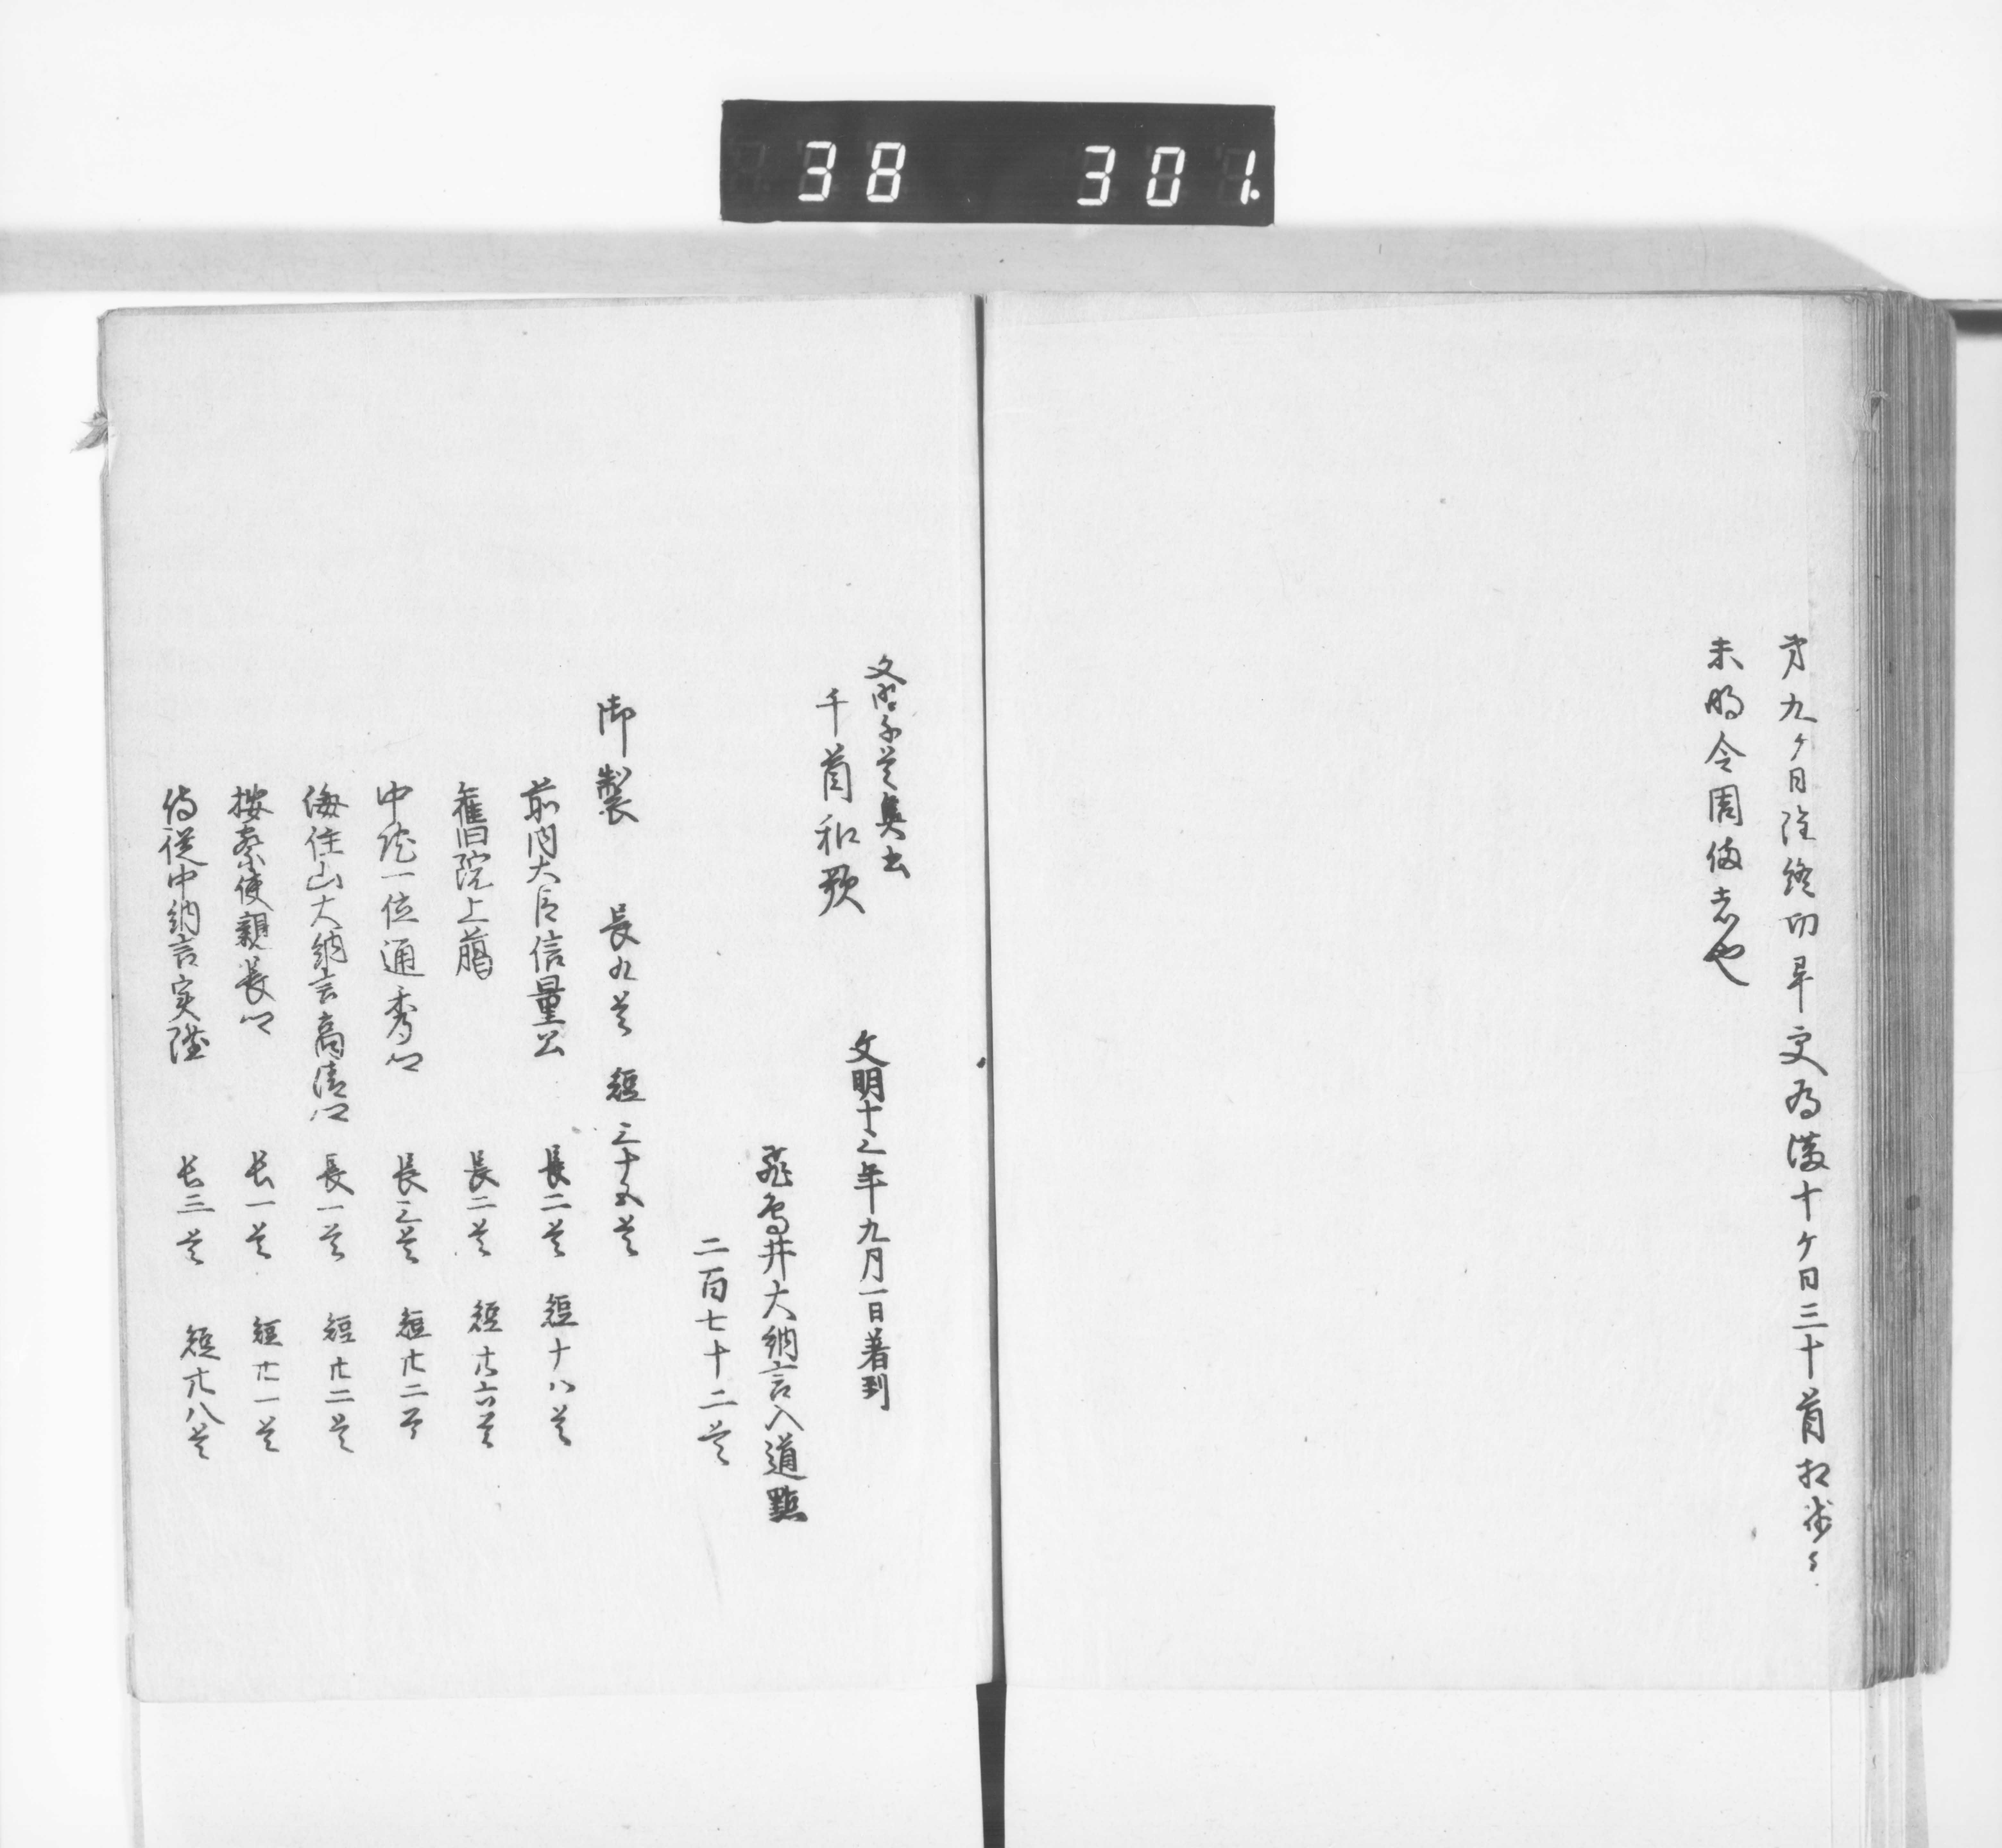 38 301
九ケ日詠終功早 更為満十ケ日三十首
未 今周備者也
文明千首奥書
千首和歌
文明十三年九月一日着到
飛鳥井大納言入道點
二百七十二首
御製 長九首 短三十五首
前内大臣信量公 長二首 短十八首
旧院上臈 長二首 短廿六首
中院一位通秀卿 長三首 短廿二首
海住山大納言高清卿 長一首 短廿二首
按察使親長卿 长一首 短廿一首
侍従中納言実隆 长三首 短廿八首